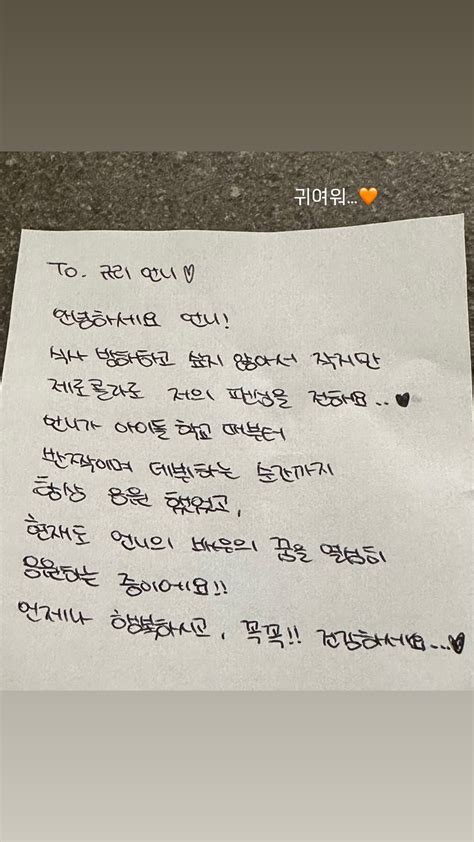 귀여워...🧡
To. 규리 언니♡
안녕하세요 언니!
식사 방해하고 싶지 않아서 작지만
제로콜라로 저의 팬심을 전해요..♥
언니가 아이돌 학교 때부터
반짝이며 데뷔하는 순간까지
항상 응원 했었고,
현재도 언니의 배우의 꿈을 열심히
응원하는 중이에요!!
언제나 행복하시고, 꼭꼭!! 건강하세요...♥